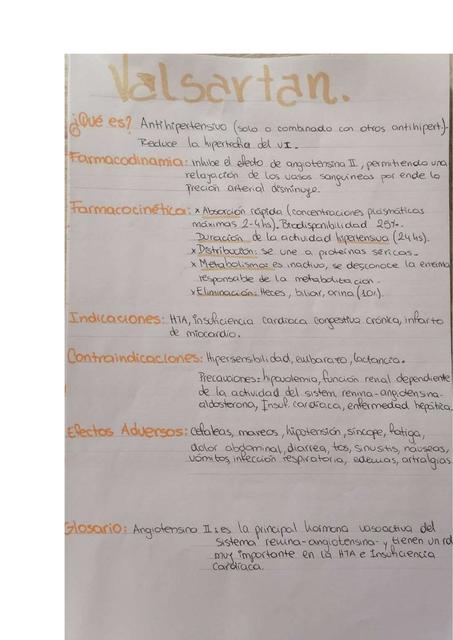 Valsartan.
¿Qué es? Antihipertensivo (solo o combinado con otros antihipert).
Reduce la hipertrofia del VI.
Farmacodinamia: inhibe el efecto de angiotensina II, permitiendo una
relajación de los vasos sanguíneos por ende la
presión arterial disminuye.
Farmacocinética: x Absorción rápida (concentraciones plasmáticas
máximas 2-4hs). Biodisponibilidad 25%.
Duración de la actividad hipertensiva (24hs).
x Distribución: se une a proteínas sericas.
x Metabolismo: es inactivo, se desconoce la enzima
responsable de la metabolización.
x Eliminación: Heces, biliar, orina (10%).
Indicaciones: HTA, insuficiencia cardiaca congestiva crónica, infarto
de miocardio.
Contraindicaciones: Hipersensibilidad, embarazo, lactancia.
Precauciones: hipovolemia, función renal dependiente
de la actividad del sistem. renina-angiotensina-
aldosterona, Insuf. cardíaca, enfermedad hepática.
Efectos Adversos: Cefaleas, mareos, hipotensión, síncope, fatiga,
dolor abdominal, diarrea, tos, sinusitis, náuseas,
vómitos, infección respiratoria, edemas, artralgias.
Glosario: Angiotensina II: es la principal hormona vasoactiva del
sistema renina-angiotensina- y tienen un rol
muy importante en la HTA e Insuficiencia
Cardíaca.